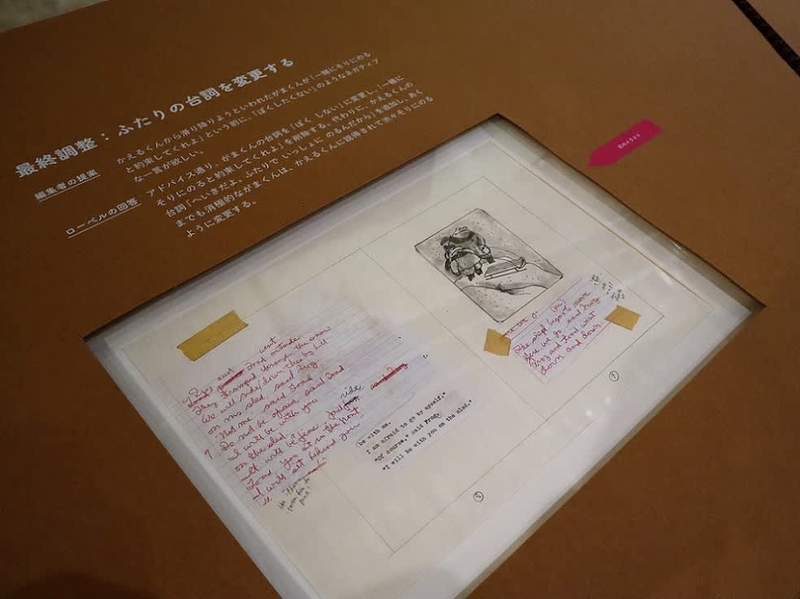 最終調整：ふたりの台詞を変更する
編集者の提案
かえるくんから滑り降りようといわれたがまくんが「一緒にそりにのる
と約束してくれよ」という前に、「ぼくしたくない」のようなネガティブ
な一言が欲しい。
ローベルの回答
アドバイス通り、がまくんの台詞を「ぼく しない」に変更し、「一緒に
そりにのると約束してくれよ」を削除する。代わりに、かえるくんの
台詞「へいきだよ。ふたりで いっしょに のるんだから」を追加し、あく
までも消極的ながまくんは、かえるくんに説得されて渋々そりにのる
ように変更する。
Frog and Toad went outside
They tramped through the snow
We will ride down this big hill
on my sled said Frog
Not me said Toad
Do not be afraid said Frog
I will be with you
on the sled
It will be fine ride
Toad, you sit in the front
I will sit behind you
be with me.
I am afraid to go by myself."
"Of course," said Frog.
"I will be with you on the sled."
The sled began to move
Here we go said Frog
Frog and Toad went
down and down.